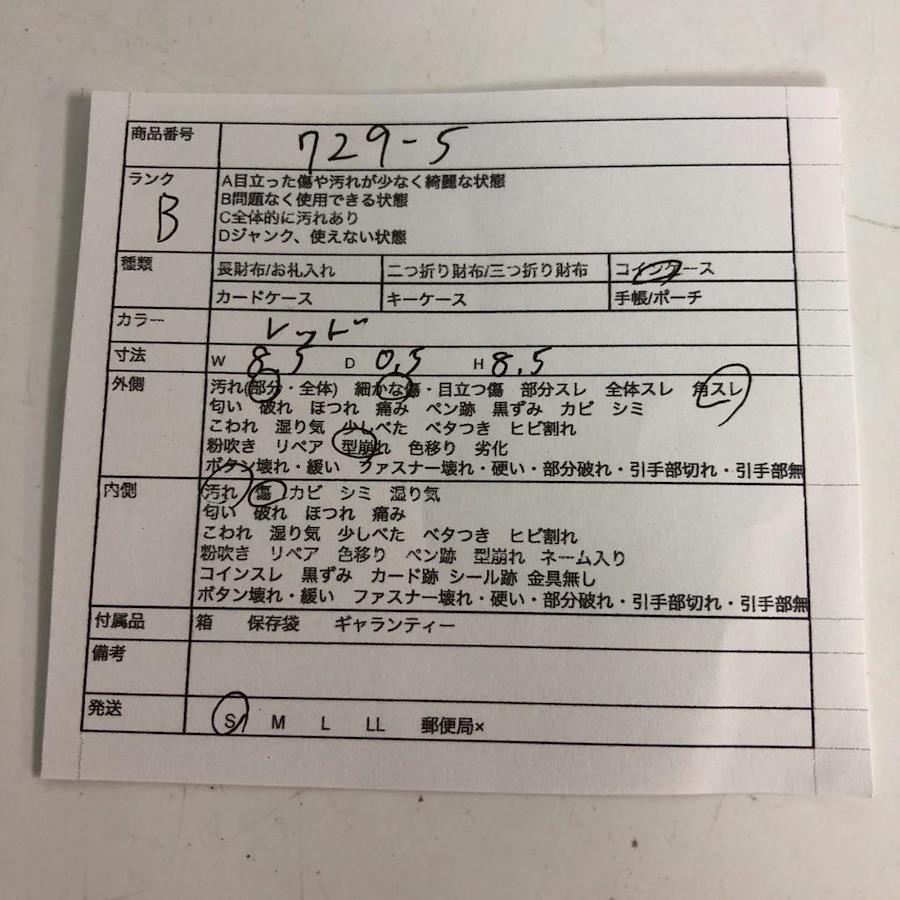 商品番号 729-5
ランク B
A目立った傷や汚れが少なく綺麗な状態
B問題なく使用できる状態
C全体的に汚れあり
Dジャンク、使えない状態
種類 長財布/お札入れ 二つ折り財布/三つ折り財布 コインケース
カードケース キーケース 手帳/ポーチ
カラー レッド
寸法 W 8.5 D 0.5 H 8.5
外側 汚れ(部分・全体) 細かな傷・目立つ傷 部分スレ 全体スレ 角スレ
匂い 破れ ほつれ 痛み ペン跡 黒ずみ カビ シミ
こわれ 湿り気 少しべた ベタつき ヒビ割れ
粉吹き リペア 型崩れ 色移り 劣化
ボタン壊れ・緩い ファスナー壊れ・硬い・部分破れ・引手部切れ・引手部無
内側 汚れ 傷 カビ シミ 湿り気
匂い 破れ ほつれ 痛み
こわれ 湿り気 少しべた ベタつき ヒビ割れ
粉吹き リペア 色移り ペン跡 型崩れ ネーム入り
コインスレ 黒ずみ カード跡 シール跡 金具無し
ボタン壊れ・緩い ファスナー壊れ・硬い・部分破れ・引手部切れ・引手部無
付属品 箱 保存袋 ギャランティー
備考
発送 S M L LL 郵便局×